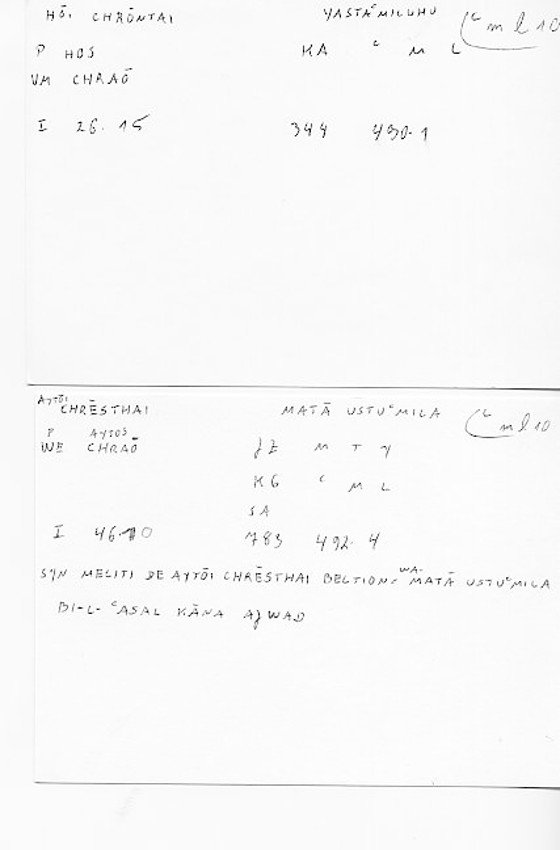 HŌI CHRŌNTAI YASTAʿMILUHU ʿml 10
P HOS KA ʿ M L
VM CHRAŌ
I 26.15 344 490.1
AYTŌI
CHRĒSTHAI MATĀ USTUʿMILA ʿml 10
P AYTOS
WE CHRAŌ JZ M T Y
KG ʿ M L
SA
I 46.10 783 492.4
SYN MELITI DE AYTŌI CHRĒSTHAI BELTION: WA-MATĀ USTUʿMILA
BI-L-ʿASAL KĀNA AJWAD